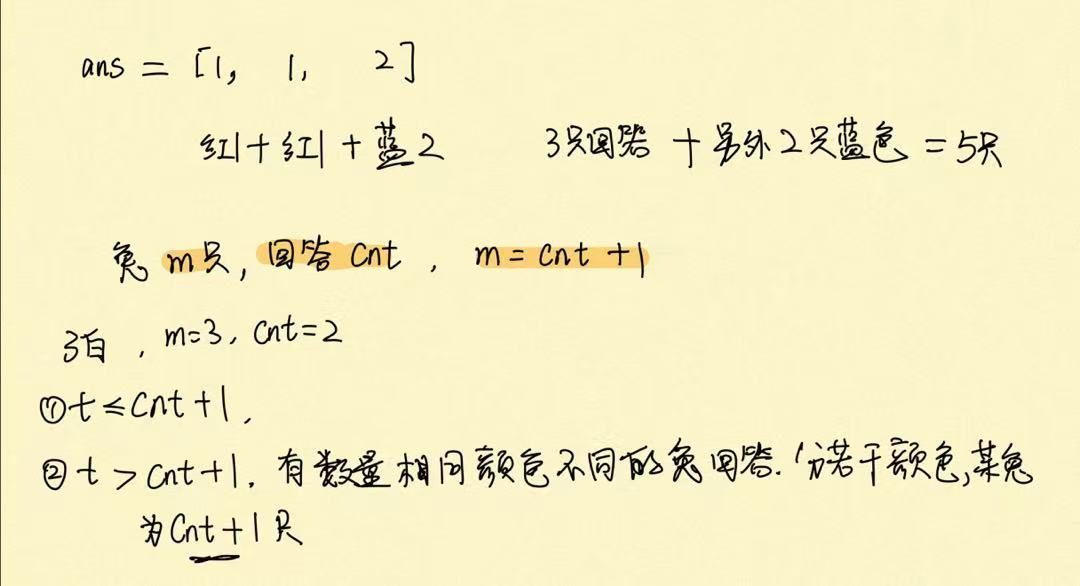 ans = [1, 1, 2]
红1+红1+蓝2 3只回答 + 另外2只蓝色 = 5只
兔m只, 回答cnt, m = cnt + 1
3白, m=3, cnt=2
①t ≤ cnt + 1,
②t > cnt + 1. 有数量相同颜色不同的兔回答. 分若干颜色,某兔
为cnt+1只